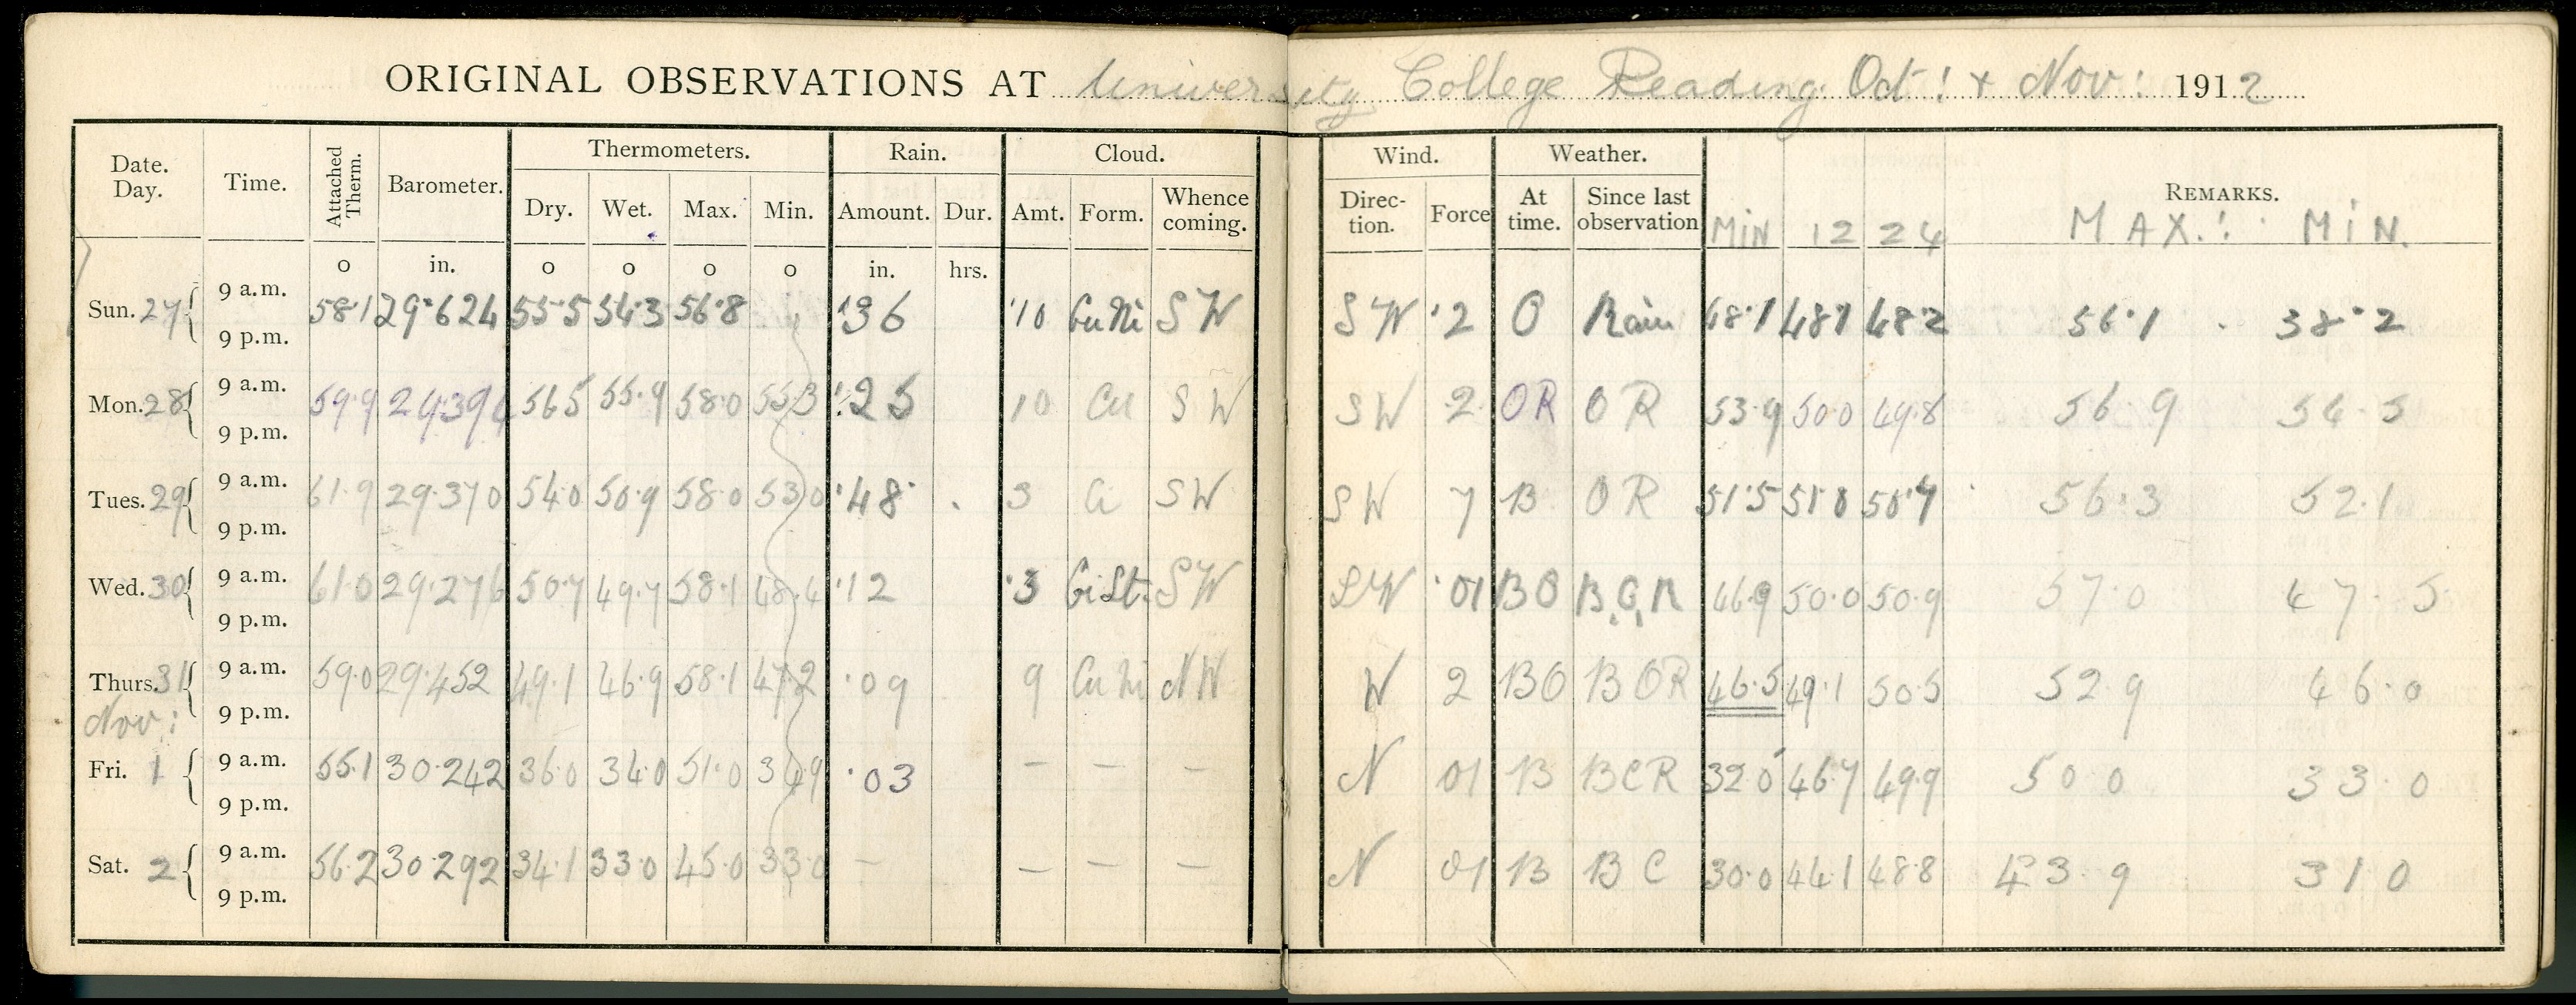 ORIGINAL OBSERVATIONS AT University College Reading Oct: + Nov: 1912
Date. Day. Time. Attached Therm. Barometer. Thermometers. Rain. Cloud. Wind. Weather. REMARKS.
Dry. Wet. Max. Min. Amount. Dur. Amt. Form. Whence coming. Direction. Force At time. Since last observation MIN 12 24 MAX. MIN.
o in. o o o o in. hrs.
Sun. 27 9 a.m. 58.1 29.624 55.5 54.3 56.8 .36 10 Cu Ni SW SW 2 O Rain 48.1 48.1 48.2 56.1 38.2
9 p.m.
Mon. 28 9 a.m. 59.9 29.394 56.5 55.9 58.0 55.3 .25 10 Cu SW SW 2 OR OR 53.9 50.0 49.8 56.9 54.5
9 p.m.
Tues. 29 9 a.m. 61.9 29.370 54.0 50.9 58.0 53.0 .48 3 Ci SW SW 7 B OR 51.5 51.0 50.7 56.3 52.1
9 p.m.
Wed. 30 9 a.m. 61.0 29.276 50.7 49.7 58.1 48.4 .12 3 Ci St. SW SW 01 BO 46.9 50.0 50.9 57.0 47.5
9 p.m.
Thurs. 31 9 a.m. 59.0 29.452 49.1 46.9 58.1 47.2 .09 9 Cu Ni NW W 2 BO BOR 46.5 49.1 50.5 52.9 46.0
9 p.m.
Nov:
Fri. 1 9 a.m. 55.1 30.242 36.0 34.0 51.0 34.9 .03 — — — N 01 B BCR 32.0 46.7 49.9 50.0 33.0
9 p.m.
Sat. 2 9 a.m. 56.2 30.292 34.1 33.0 45.0 33.0 — — — — N 01 B BC 30.0 44.1 48.8 43.9 31.0
9 p.m.